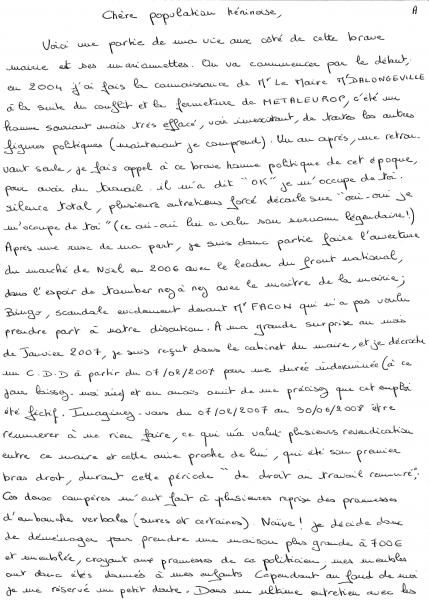 Chère population héninoise, A
Voici une partie de ma vie aux côté de cette brave
mairie et ses marionnettes. On va commencer par le début,
en 2004 j'ai fais la connaissance de Mr Le Maire Mr DALONGEVILLE
à la suite du conflit et la fermeture de METALEUROP, c'été un
homme souriant mais très effacé, voir inexistant, de toutes les autres
figures politiques (maintenant je comprend). Un an après, me retrou-
vant seule, je fais appel à ce brave homme politique de cet époque,
pour avoir du travail. il m'a dit "OK" je m'occupe de toi.
silence total, plusieurs entretiens forcé découle sur "oui-oui je
m'occupe de toi" (ce oui-oui lui a valu son surnom légendaire!)
Après une ruse de ma part, je suis donc partie faire l'ouverture
du marché de Noël en 2006 avec le leader du front national,
dans l'espoir de tomber nez à nez avec le maître de la mairie;
Bingo, scandale évidement devant Mr FACON qui n'a pas voulu
prendre part à notre discution. A ma grande surprise au mois
de Janvier 2007, je suis reçut dans le cabinet du maire, et je décroche
un C.D.D à partir du 07/02/2007 pour une durée indéterminée (à ce
jour laissez-moi rire) et au mois omit de me précisez que cet emploi
été fictif. Imaginez-vous du 07/02/2007 au 30/06/2008 être
rémunérer à ne rien faire, ce qui m'a valut plusieurs revendication
entre ce maire et cette amie proche de lui, qui été son premier
bras droit, durant cette période "de droit au travail rémunéré".
Ces donc compères m'ont fait à plusieures reprise des promesses
d'embauche verbales (sures et certaines). Naïve! je décide donc
de déménager pour prendre une maison plus grande à 700€
et meublée, croyant aux promesses de ce politicien, mes meubles
ont donc étés donnés à mes enfants Cependant au fond de moi
je me réservé un petit doute. Dans un ultime entretien avec les